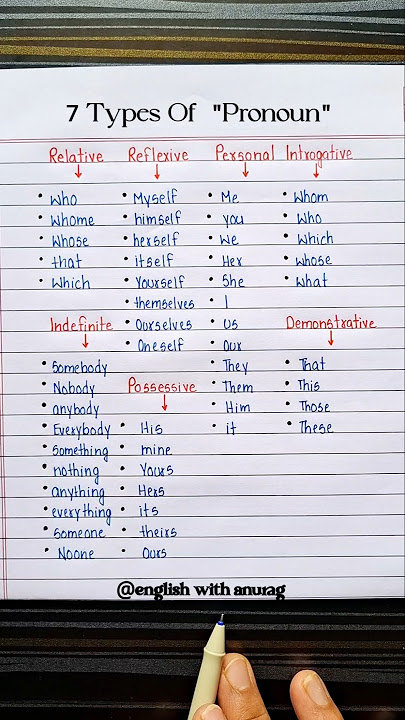 7 Types Of "Pronoun"
Relative
• Who
• Whome
• Whose
• that
• Which
Reflexive
• Myself
• himself
• herself
• itself
• Yourself
• themselves
• Ourselves
• Oneself
Personal
• Me
• you
• We
• Her
• She
• I
• us
• our
• They
• Them
• Him
• it
Introgative
• Whom
• Who
• Which
• whose
• What
Indefinite
• Somebody
• Nobody
• anybody
• Everybody
• Something
• nothing
• anything
• everything
• Someone
• Noone
Possessive
• His
• mine
• Yours
• Hers
• its
• theirs
• Ours
Demonstrative
• That
• This
• Those
• These
@english with anurag